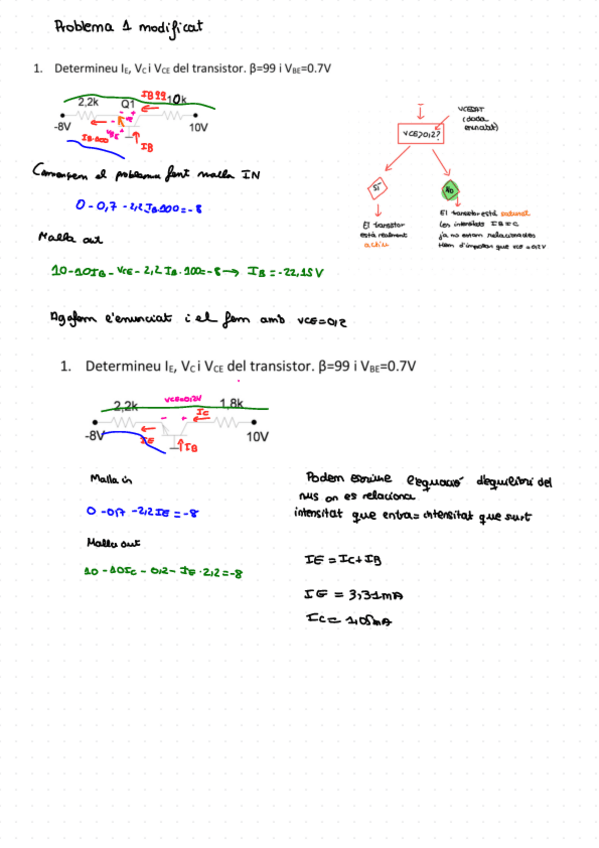 Problema 1 modificat
1. Determineu IE, VC i VCE del transistor. β=99 i VBE=0.7V
2,2k Q1 IB99 10k
-8V 10V
VBE
IB·100
IB
Començem el problema fent malla IN
0 - 0,7 - 2,2 IB·100 = -8
Malla out
10 - 10IB - VCE - 2,2 IB · 100 = -8 → IB = -22,15 V
VCESAT
(dada
enunciat)
VCE>0,2?
SÍ
NO
El transistor
està realment
actiu
El transistor està saturat
les intensitats IB i C
ja no estan relacionades
Hem d'imposar que VCE = 0,2V
Agafem l'enunciat i el fem amb VCE=0,2
1. Determineu IE, VC i VCE del transistor. β=99 i VBE=0.7V
2,2k VCE=0,2V 1,8k
IC
-8V IE IB 10V
Malla in
0 - 0,7 - 2,2 IE = -8
Malla out
10 - 10IC - 0,2 - IE · 2,2 = -8
Podem escriure l'equació d'equilibri del
nus on es relaciona
intensitat que entra = intensitat que surt
IE = IC + IB
IE = 3,31mA
IC = 1,05mA